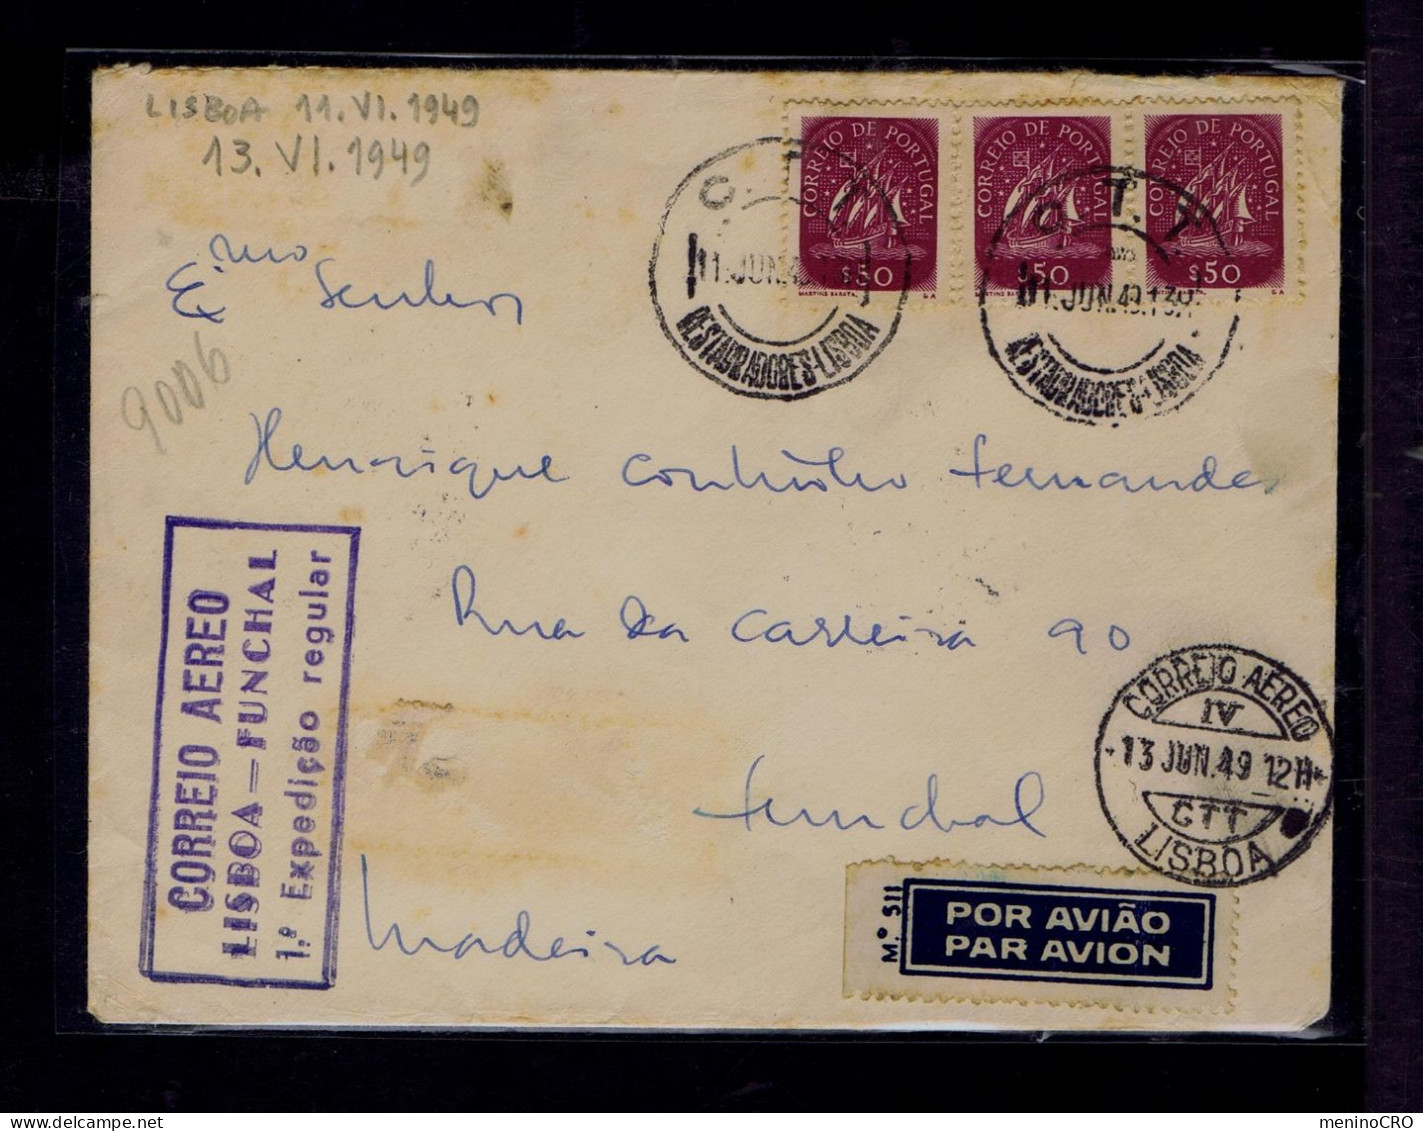 LISBOA 11.VI.1949
13.VI.1949
CORREIO DE PORTUGAL
$50
MARTINS BARATA
CORREIO DE PORTUGAL
$50
CORREIO DE PORTUGAL
$50
C.T.T.
11.JUN.49
RESTAURADORES-LISBOA
C.T.T
11.JUN.49
RESTAURADORES-LISBOA
Exmo
Senhor
9006
Henrique Coutinho Fernandes
Rua da Carreira 90
Funchal
Madeira
CORREIO AEREO
LISBOA=FUNCHAL
1.ª Expedição regular
CORREIO AÉREO
IV
13 JUN.49 12H
CTT
LISBOA
M.º 511
POR AVIÃO
PAR AVION
meninoCRO